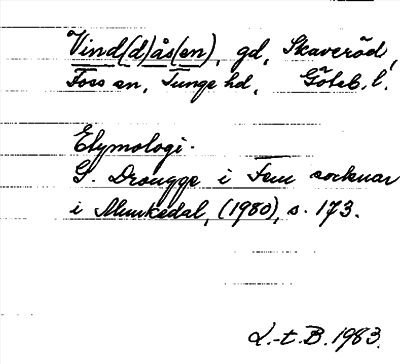 Vind(d)ås(en), gd, Skaveröd,
Foss sn, Tunge hd, Göteb. l.
Etymologi.
G. Drougge i Fem socknar
i Munkedal, (1980), s. 173.
L.-t. B. 1983.